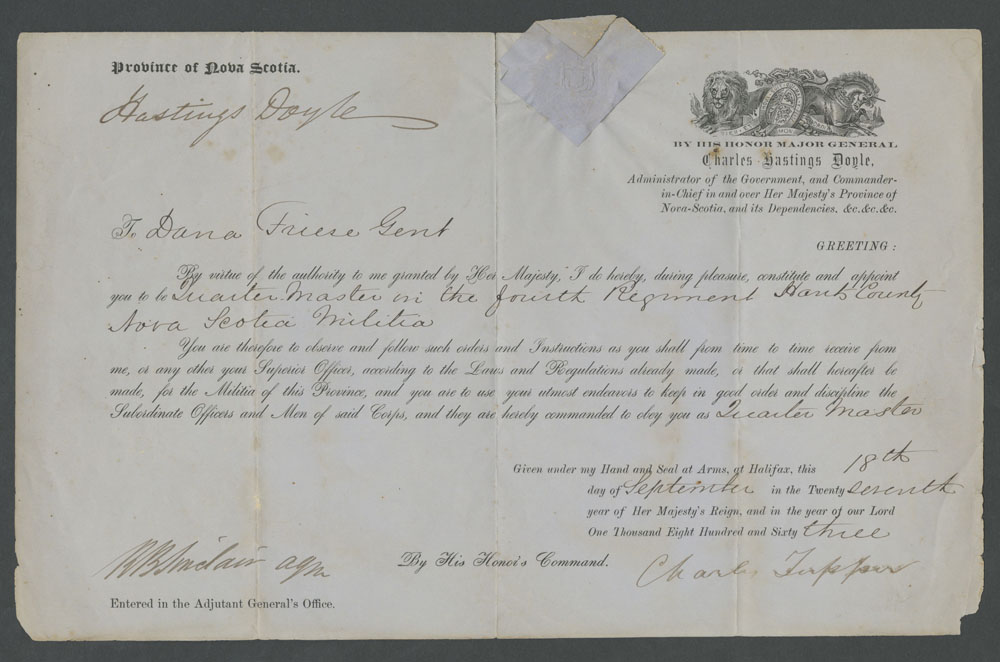 Province of Nova Scotia.
Hastings Doyle
BY HIS HONOR MAJOR GENERAL
Charles Hastings Doyle,
Administrator of the Government, and Commander-
in-Chief in and over Her Majesty's Province of
Nova-Scotia, and its Dependencies. &c. &c. &c.
GREETING:
To Dana Friese Gent
By virtue of the authority to me granted by Her Majesty, I do hereby, during pleasure, constitute and appoint
you to be Quarter Master in the fourth Regiment Hants County
Nova Scotia Militia
You are therefore to observe and follow such orders and Instructions as you shall from time to time receive from
me, or any other your Superior Officer, according to the Laws and Regulations already made, or that shall hereafter be
made, for the Militia of this Province, and you are to use your utmost endeavors to keep in good order and discipline the
Subordinate Officers and Men of said Corps, and they are hereby commanded to obey you as Quarter Master
Given under my Hand and Seal at Arms, at Halifax, this 18th
day of September in the Twenty seventh
year of Her Majesty's Reign, and in the year of our Lord
One Thousand Eight Hundred and Sixty three
By His Honor's Command.
Charles Tupper
R B Sinclair agm
Entered in the Adjutant General's Office.